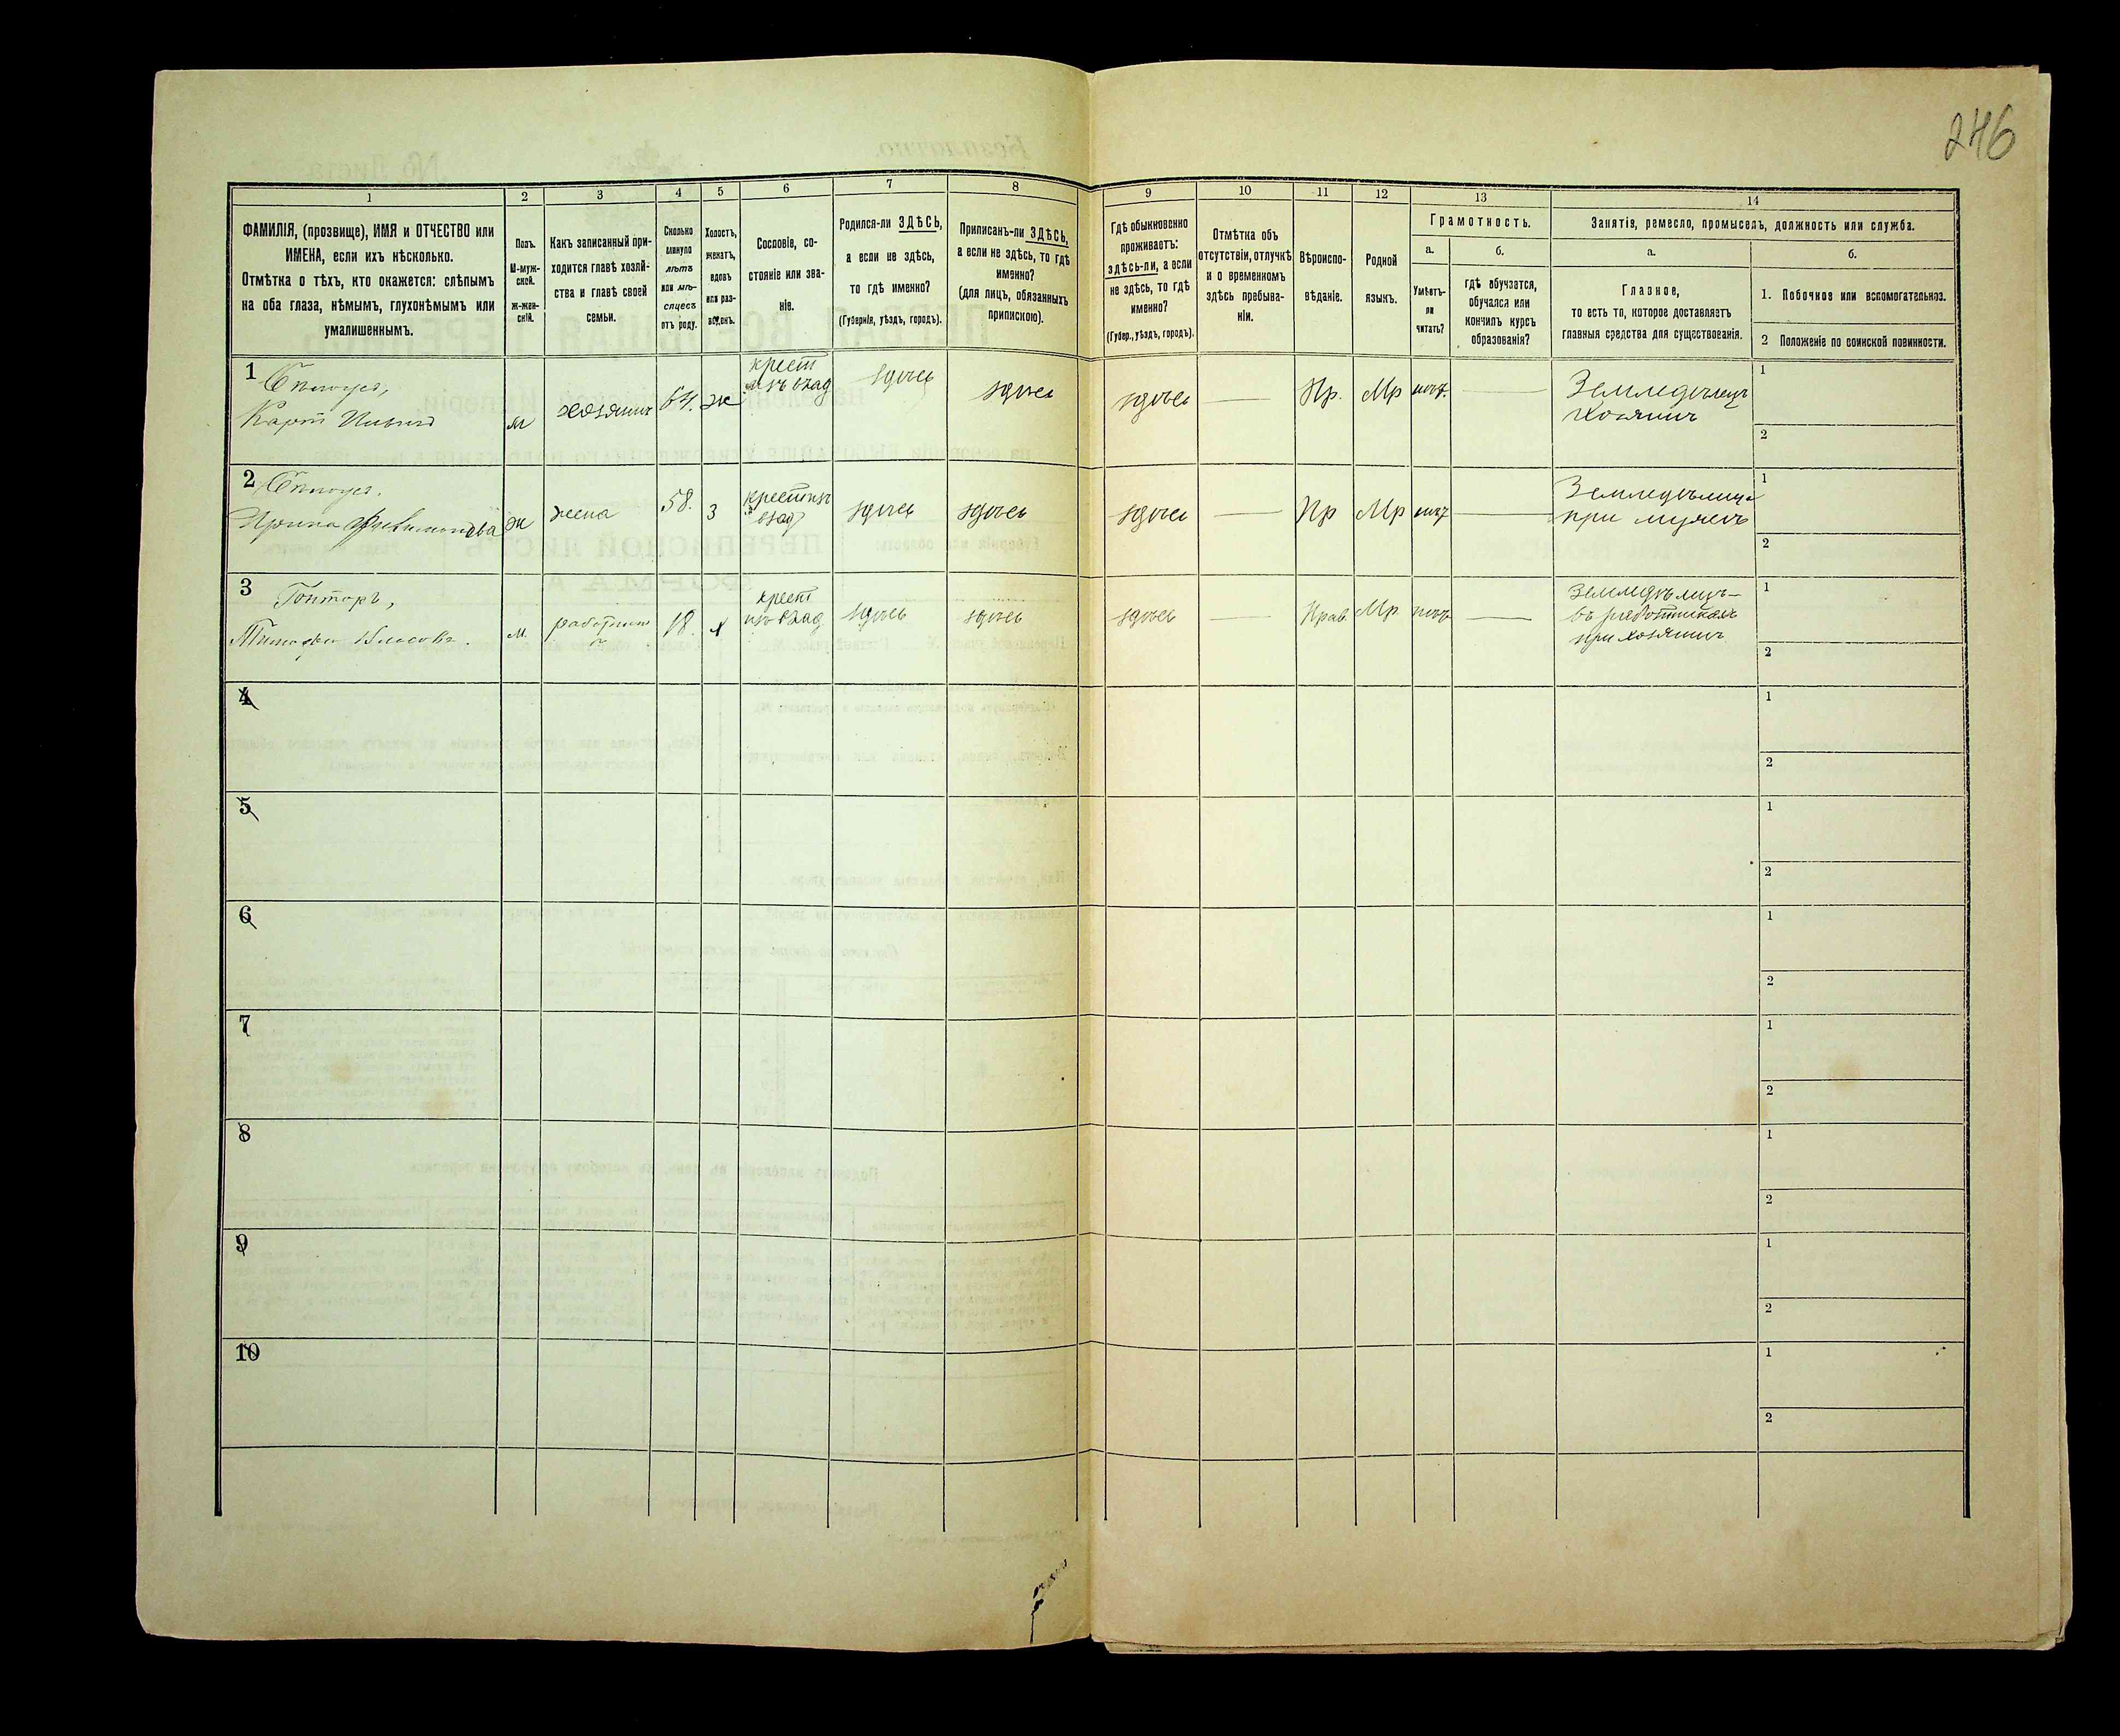 246
1
2
3
4
5
6
7
8
9
10
11
12
13
14
ФАМИЛІЯ, (прозвище), ИМЯ и ОТЧЕСТВО или
ИМЕНА, если ихъ нѣсколько.
Отмѣтка о тѣхъ, кто окажется: слѣпымъ
на оба глаза, нѣмымъ, глухонѣмымъ или
умалишеннымъ.
Полъ.
М-муж-
ской.
Ж-жен-
скій.
Какъ записанный при-
ходится главѣ хозяй-
ства и главѣ своей
семьи.
Сколько
минуло
лѣтъ
или мѣ-
сяцевъ
отъ роду.
Холостъ,
женатъ,
вдовъ
или раз-
веденъ.
Сословіе, со-
стояніе или зва-
ніе.
Родился-ли ЗДѢСЬ,
а если не здѣсь,
то гдѣ именно?
(Губернія, уѣздъ, городъ).
Приписанъ-ли ЗДѢСЬ,
а если не здѣсь, то гдѣ
именно?
(для лицъ, обязанныхъ
припискою).
Гдѣ обыкновенно
проживаетъ:
здѣсь-ли, а если
не здѣсь, то гдѣ
именно?
(Губер., уѣздъ, городъ).
Отмѣтка объ
отсутствіи, отлучкѣ
и о временномъ
здѣсь пребыва-
ніи.
Вѣроиспо-
вѣданіе.
Родной
языкъ.
Грамотность.
а.
Умѣетъ-
ли
читать?
б.
гдѣ обучается,
обучался или
кончилъ курсъ
образованія?
Занятія, ремесло, промыселъ, должность или служба.
а.
Главное,
то есть то, которое доставляетъ
главныя средства для существованія.
б.
1. Побочное или вспомогательное.
2 Положеніе по воинской повинности.
1
Карп
м
хозяинъ
64.
ж
крест
изъ влад
здѣсь
здѣсь
здѣсь
Пр.
Мр
нѣт.
Земледѣлец
Хозяинъ
1
2
2
Ирина
ж
жена
58.
з
крест изъ
влад
здѣсь
здѣсь
здѣсь
Пр
Мр
нѣт
при мужѣ
1
2
3
Гонторъ,
Власовъ.
м.
работник
18.
х
крест
изъ влад
здѣсь
здѣсь
здѣсь
Прав.
Мр
нѣт
въ работникахъ
при хозяинѣ
1
2
4
1
2
5
1
2
6
1
2
7
1
2
8
1
2
9
1
2
10
1
2